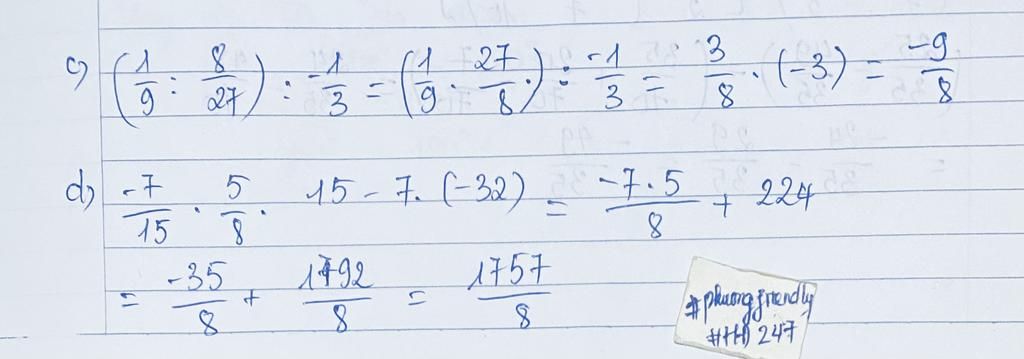 c) (1/9 : 8/27) : -1/3 = (1/9 . 27/8 .) : -1/3 = 3/8 . (-3) = -9/8
d) -7/15 . 5/8 . 15 - 7. (-32) = -7.5/8 + 224
= -35/8 + 1792/8 = 1757/8
#phuongfriendly
#HD 247